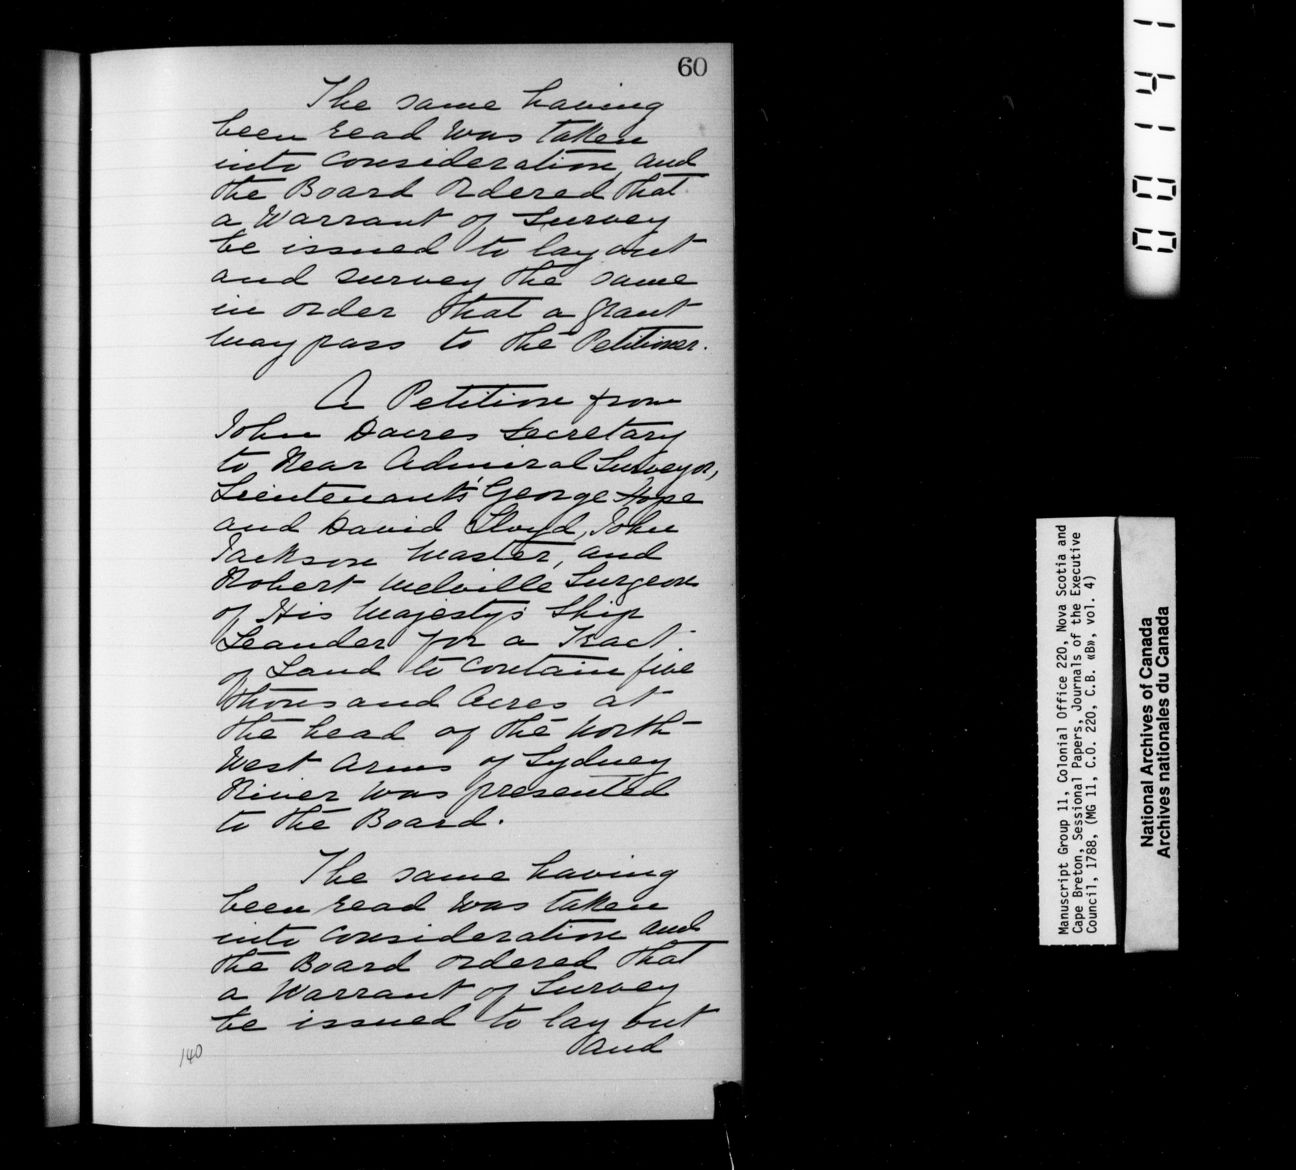 60
The same having
been read was taken
into consideration and
the Board Ordered that
a Warrant of Survey
be issued to lay out
and survey the same
in order that a Grant
may pass to the Petitioner.
A Petition from
John Dacres Secretary
to Rear Admiral Surveyor,
Lieutenants George Hope
and David Lloyd, John
Jackson Master, and
Robert Melville Surgeon
of His Majesty's Ship
Leander for a Tract
of Land to contain five
thousand Acres at
the head of the North
West Arms of Sydney
River was presented
to the Board.
The same having
been read was taken
into consideration and
the Board ordered that
a Warrant of Survey
be issued to lay out
and
140
00141
Manuscript Group 11, Colonial Office 220, Nova Scotia and
Cape Breton, Sessional Papers, Journals of the Executive
Council, 1788, (MG 11, C.O. 220, C.B. «B», vol. 4)
National Archives of Canada
Archives nationales du Canada